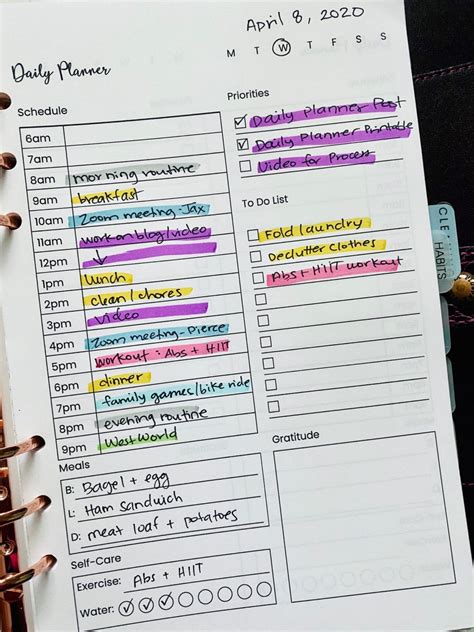 April 8, 2020
M T W T F S S
Daily Planner
Schedule
6am
7am
8am morning routine
9am breakfast
10am Zoom meeting - Jax
11am work on blog/video
12pm
1pm lunch
2pm clean/chores
3pm Video
4pm Zoom meeting - Pierce
5pm workout: Abs + HIIT
6pm dinner
7pm family games/bike ride
8pm evening routine
9pm WestWorld
Meals
B: Bagel + egg
L: Ham sandwich
D: meat loaf + potatoes
Self-Care
Exercise: Abs + HIIT
Water:
Priorities
Daily Planner Post
Daily Planner Printable
Video for Process
To Do List
Fold laundry
Declutter Clothes
Abs + HIIT workout
Gratitude
HABITS